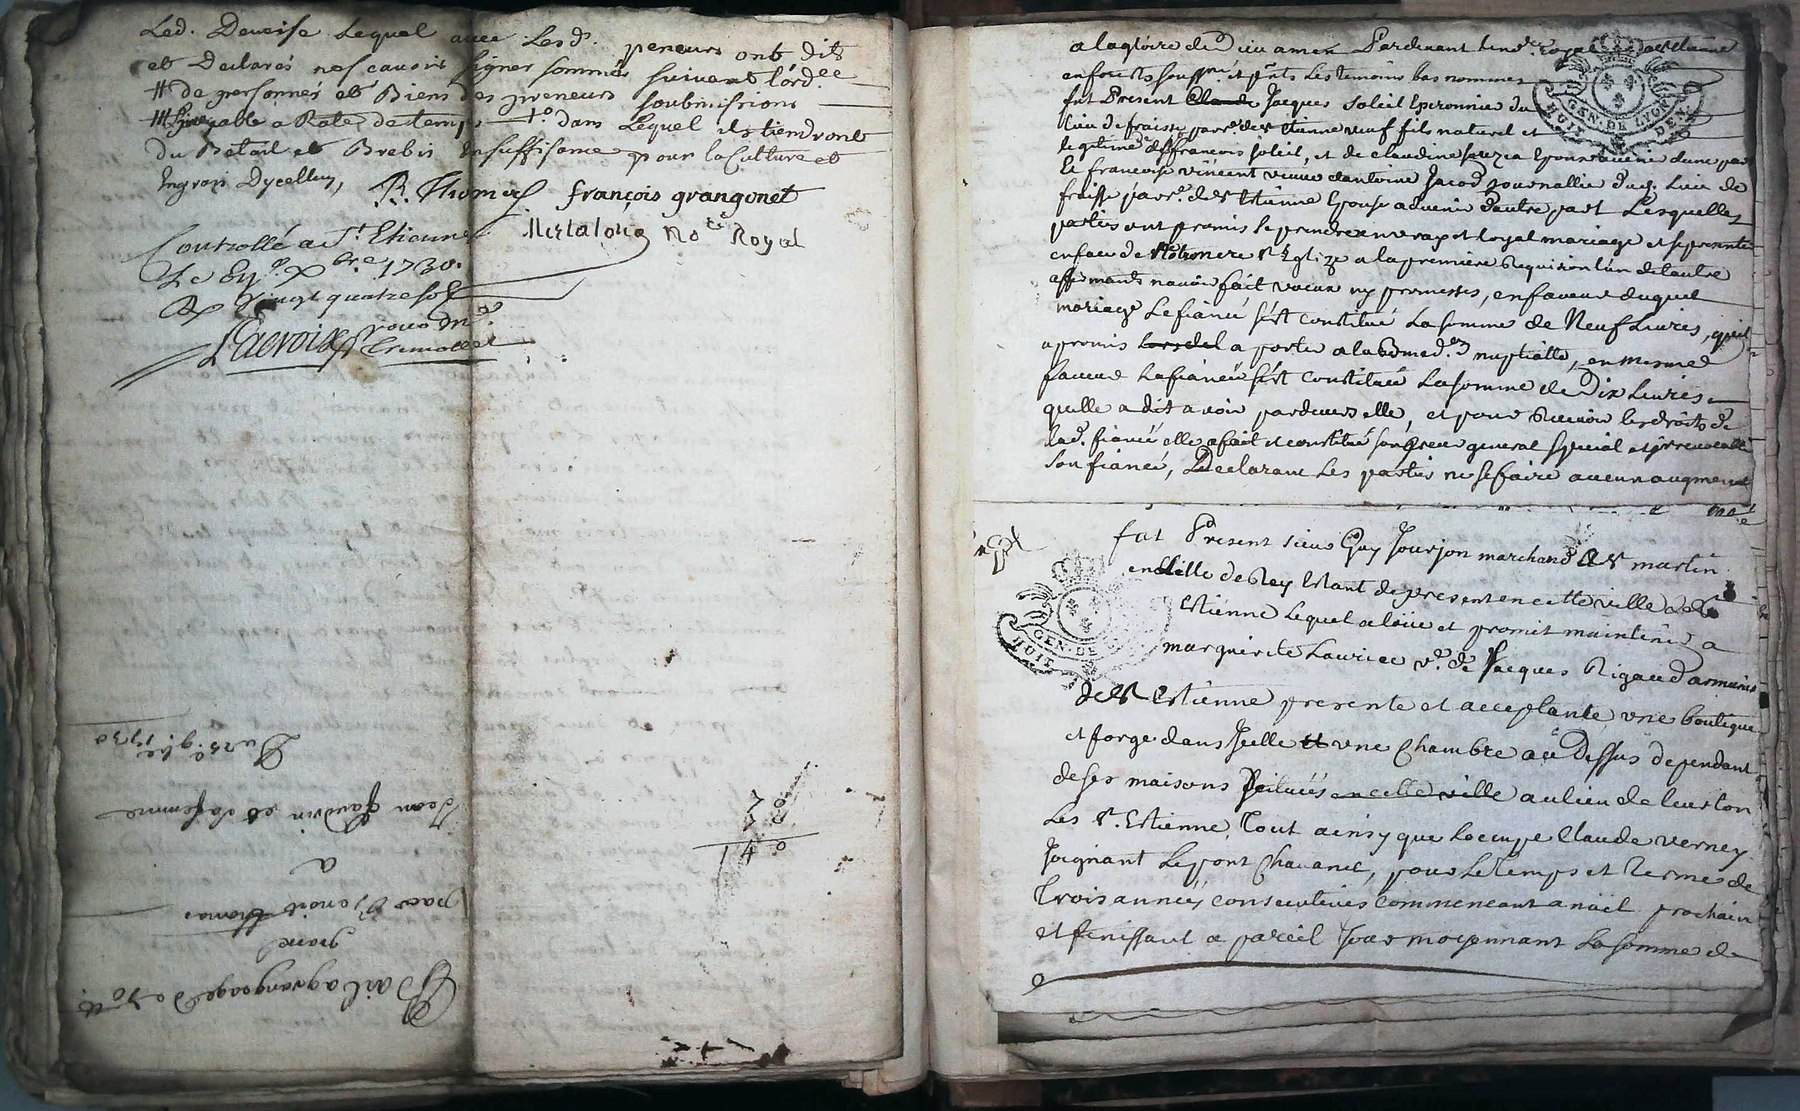 Led. Deveise Lequel avec Lesd. peneurs ont dit
et Declarés nes cavoir signer sommés suivant l'ord.ce
# de personnes et Biens des preneurs soubmissions
payable a Rate de temps dans Lequel ils tiendront
Du Betail et Brebis suffisame pour la Culture et
Engrais Dycelluy,
R. Thomas françois grangonet
No.re Royal
Controllé a S.t Etienne
Le X bre 1730.
Vingt quatre sols
Lacroix
70
70
140
Bail a grangeage de 70 #
grand
pour Benoit thomas
a
Jean et sa femme
Du 23e 9.bre 1730
a la gloire de Dieu amen Pardevant le no.re royal de St Etienne
en forests soussigné et p.nts Les temoins bas nommes
fut Present Claude Jacques Soleil Eperonnier du
Lieu de fraisse parr.e de St Etienne neuf fils naturel et
legitime de françois Soleil, et de claudine Epoux avenir d'une part
Et francoise vincent veuve dantoine Jacod journallier dud. Lieu de
fraisse parr.e de St Etienne Epouse advenir d'autre part Lesquelles
parties ont promis se prendre en vray et loyal mariage et se presenter
en face de Notre mere Ste Eglize a la premiere Requisition l'un de lautre
affirmants n'avoir fait voeux ny promesses, en faveur duquel
mariage Le fiancé s'est constitué La somme de Neuf Livres, qu'il
a promis porter a la nuptialle, en mesme
faveur La fiancée s'est constituée La somme de Dix Livres
quelle a dit avoir pardevers elle, et pour Recevoir les droits de
lad. fiancée elle a fait et constitué son general special et irrevocable
son fiancé, Declarant Les parties ne se faire aucun augment
GEN. DE LYON
HUIT DEN.
fut Present sieur Guy Jourjon marchand de St martin
en Coilleu Estant de present en cette ville de St
Etienne Lequel a loué et promit maintenir a
marguerite Lauriec v.e de Jacques Rigaud armurier
de St Etienne presente et acceptante une boutique
et forge dans Icelle et une Chambre au Dessus dependant
de ses maisons Scituées en celle ville au lieu de
Les St. Etienne, Tout ainsy que l'occupe Claude Verney
Joignant Le pont Chavanel, pour Le Temps et Terme de
Trois années consecutives commencant a noel prochain
et finissant a pareil Jour moyennant La somme de
GEN. DE
HUIT